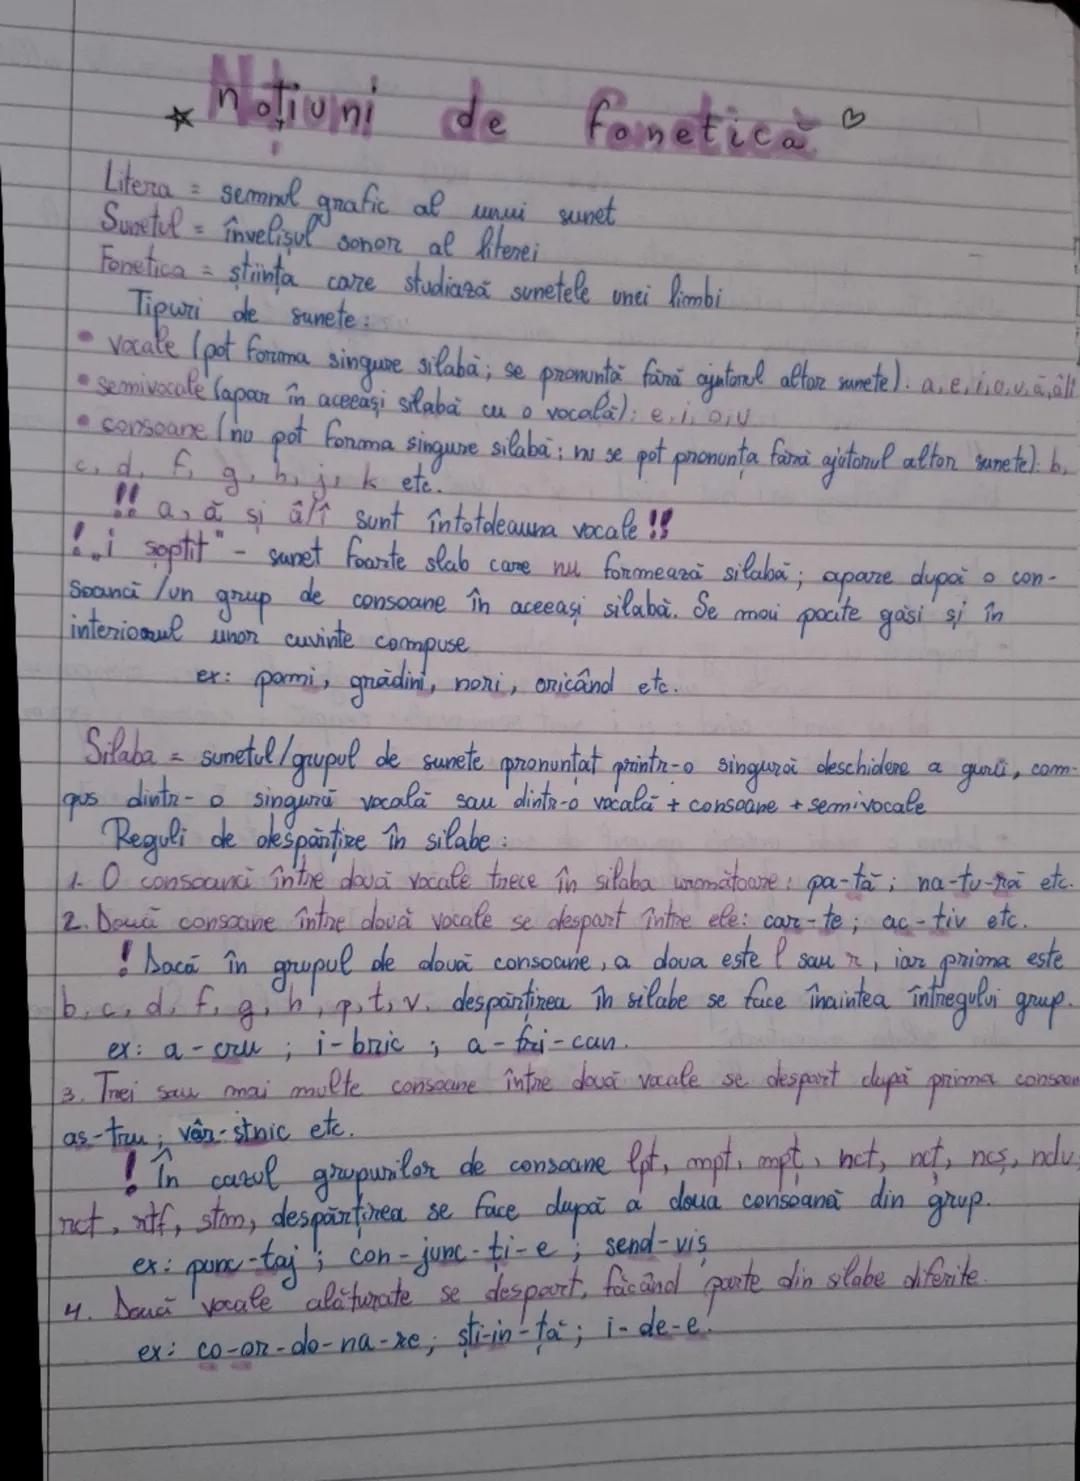 Noțiuni de fonetică
Litera = semnul grafic al unui sunet
Sunetul = învelișul sonor al literei
Fonetica = știința care studiază sunetele unei limbi
Tipuri de sunete:
• vocale (pot forma singure silabă; se pronunță fără ajutorul altor sunete): a, e, i, o, u, ă, â/î
• semivocale (apar în aceeași silabă cu o vocală): e, i, o, u
• consoane (nu pot forma singure silabă; nu se pot pronunța fără ajutorul altor sunete): b,
c, d, f, g, h, j, k etc.
!! a, ă și â/î sunt întotdeauna vocale !!
! „i șoptit" - sunet foarte slab care nu formează silabă; apare după o con-
soană /un grup de consoane în aceeași silabă. Se mai poate găsi și în
interiorul unor cuvinte compuse
ex: pomi, grădini, nori, oricând etc.
Silaba = sunetul/grupul de sunete pronunțat printr-o singură deschidere a gurii, com-
pus dintr-o singură vocală sau dintr-o vocală + consoane + semivocale
Reguli de despărțire în silabe:
1. O consoană între două vocale trece în silaba următoare: pa-tă; na-tu-ră etc.
2. Două consoane între două vocale se despart între ele: car-te; ac-tiv etc.
! Dacă în grupul de două consoane, a doua este l sau r, iar prima este
b, c, d, f, g, h, p, t, v, despărțirea în silabe se face înaintea întregului grup.
ex: a-cru; i-bric; a-fri-can.
3. Trei sau mai multe consoane între două vocale se despart după prima consoan
as-tru; vâr-stnic etc.
! În cazul grupurilor de consoane lpt, mpt, mpț, nct, ncț, ncș, ndv,
rct, rtf, stm, despărțirea se face după a doua consoană din grup.
ex: punc-taj; con-junc-ți-e; send-viș
4. Două vocale alăturate se despart, făcând parte din silabe diferite.
ex: co-or-do-na-re; ști-in-ță; i-de-e.